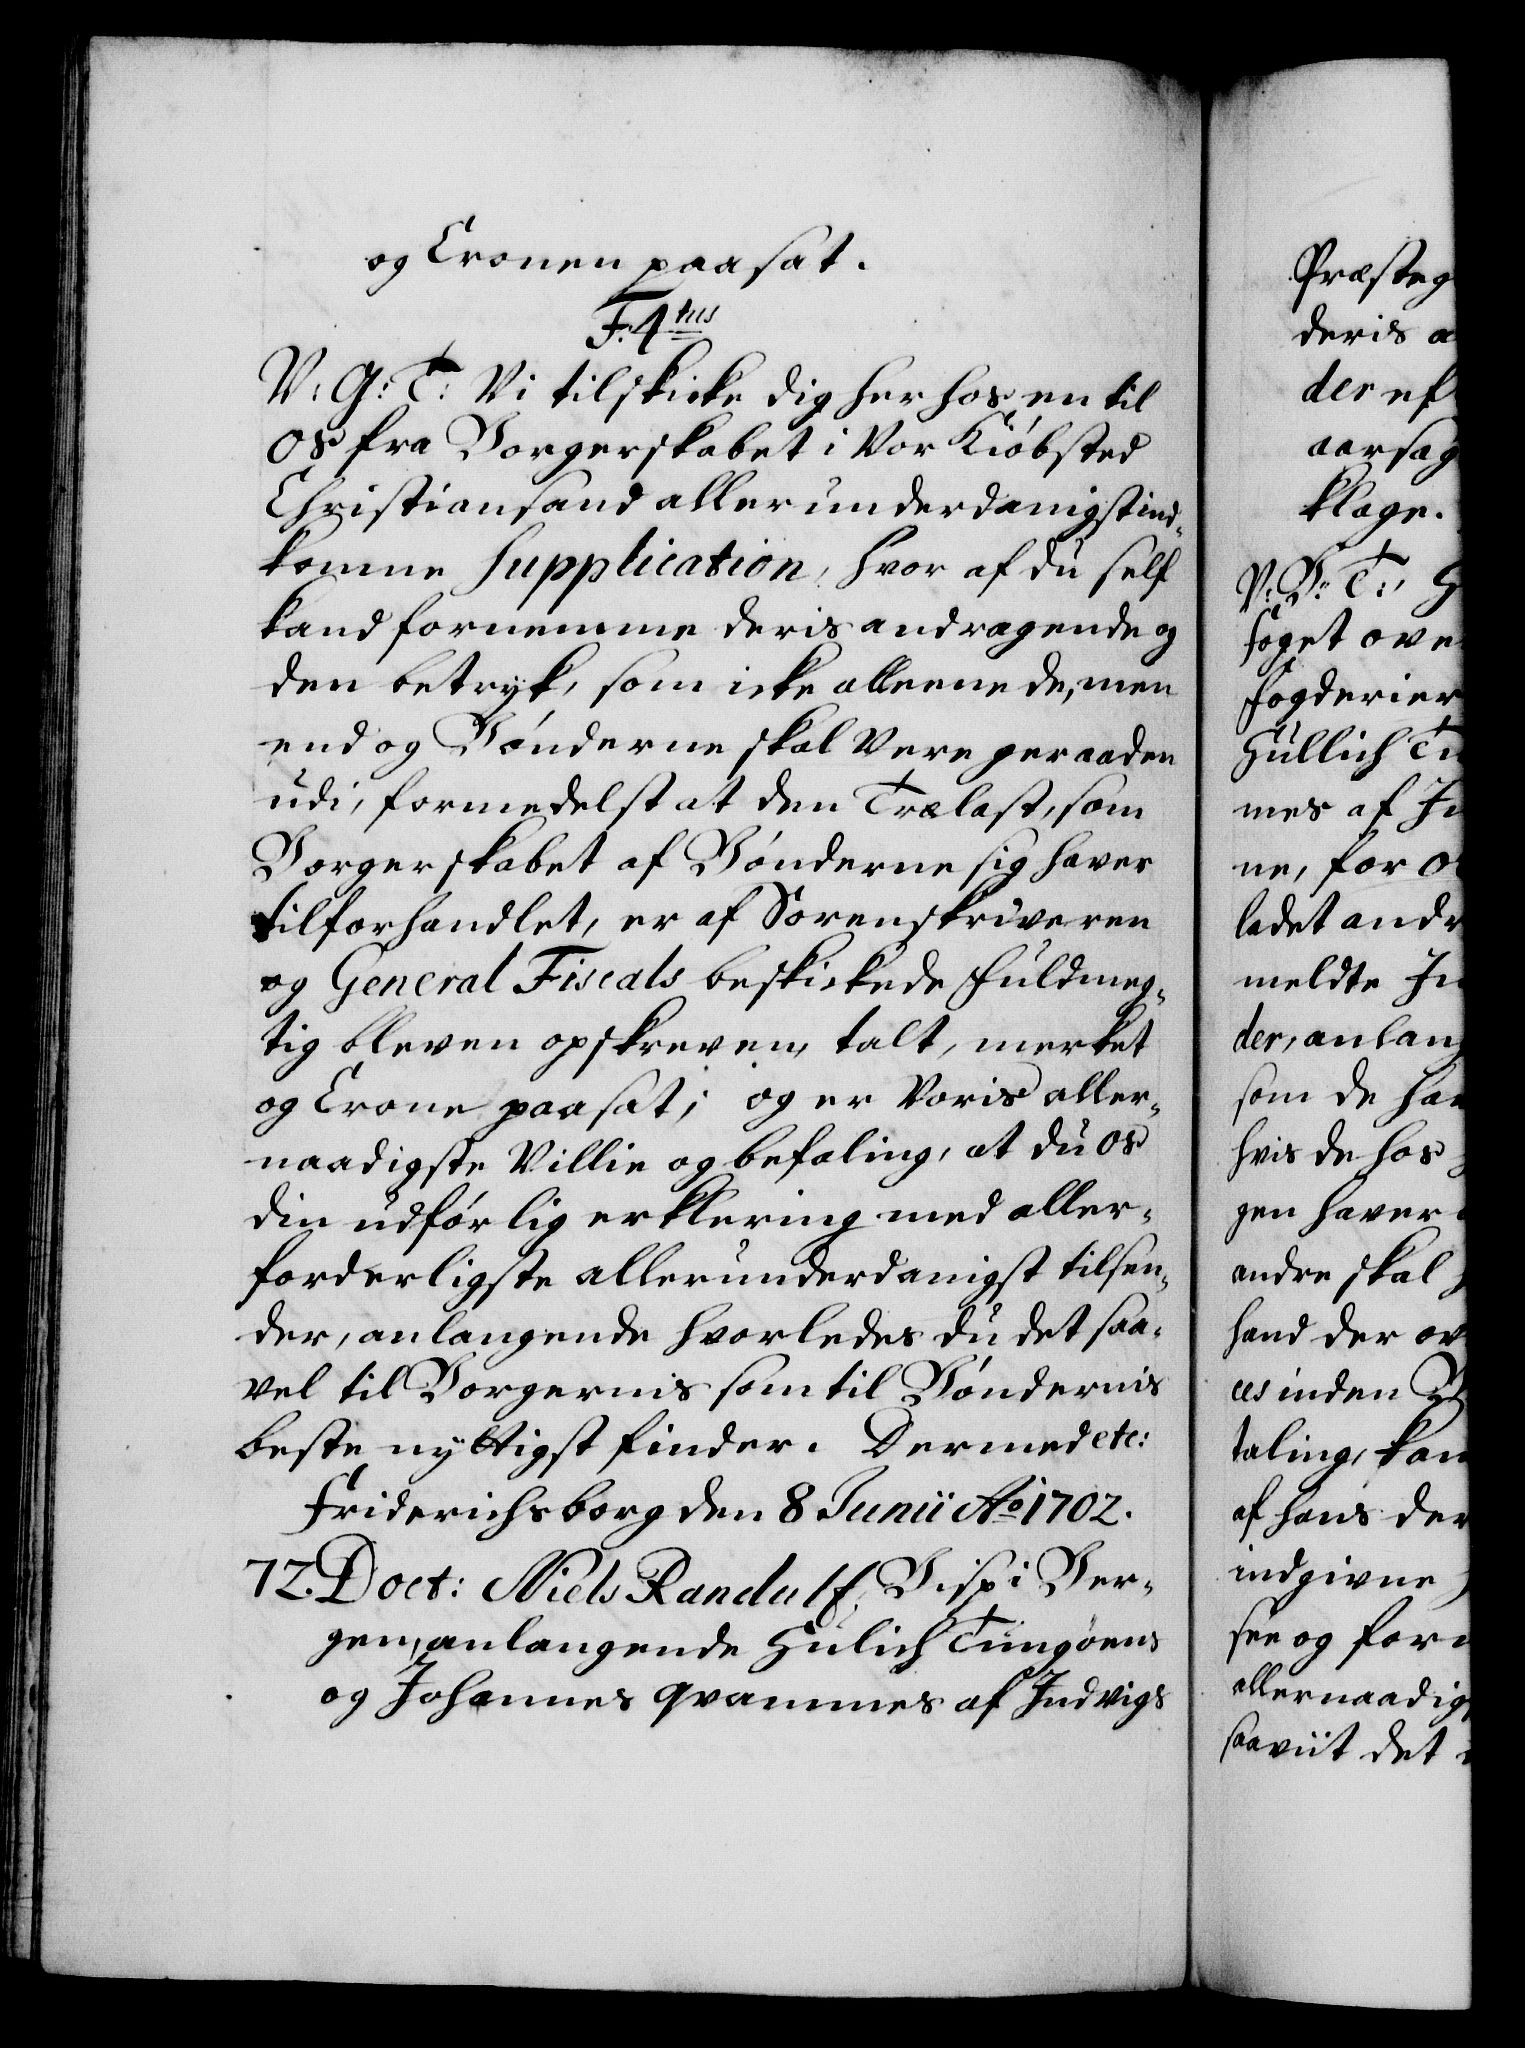 og Cronen paasat.
F. 4tus
V: G: T: Vi tilskicke dig her hos en til
os fra Borgerskabet i Vor Kiøbsted
Christiansand allerunderdanigst ind-
komne Supplication, hvor af du self
kand fornemme deris andragende og
den betryk, som icke alleene de, men
end og Bønderne skal Vere geraaden
udi, formedelst at den Trælast, som
Borgerskabet af Bønderne sig haver
tilforhandlet, er af Sorenskriveren
og General Fiscals beskickede Fuldmeg-
tig bleven opskreven, talt, merket
og Crone paasat; og er Voris aller-
naadigste Villie og befaling, at du os
din udførlig erklering med aller-
forderligste allerunderdanigst tilsen-
der, anlangende hvorledes du det saa-
vel til Borgernis som til Bøndernis
beste nyttigst finder. Dermed etc:
Friderichsborg den 8 Junii Ao 1702.
72. Doct: Niels Randulf, Bisp i Ber-
gen, anlangende Gulich Tungøens
og Johannes Qvammes af Indvigs
Præsteg
deris a
der ef
aarsag
klage.
V: G: T:, G
Foget ove
Fogderier
Gullich Tu
mes af In
ne, for o
ladet andr
meldte In
der, anlang
som de ha
hvis de hos
gen haver
andre skal
hand der ov
es inden
taling, kan
af hans der
indgivne
see og forn
allernaadig
saaviit det